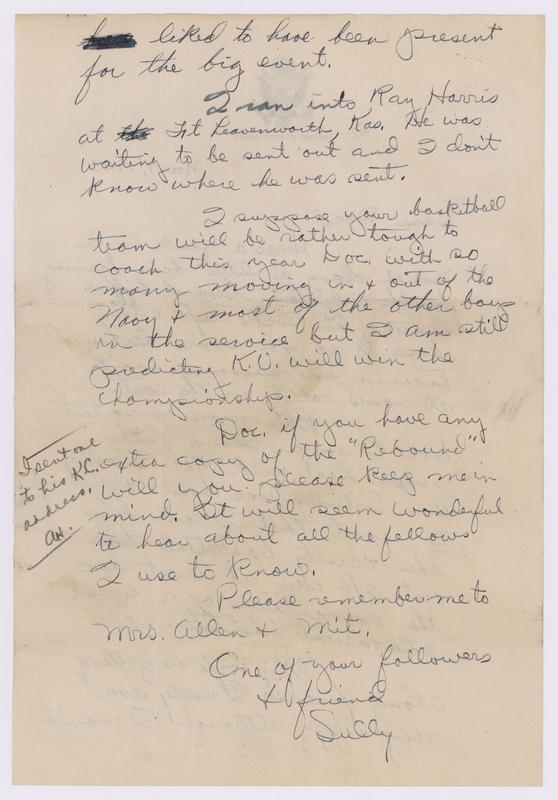 liked to have been present
for the big event.
I ran into Ray Harris
at Ft Leavenworth, Kas. He was
waiting to be sent out and I don't
know where he was sent.
I suppose your basketball
team will be rather tough to
coach this year Doc. with so
many moving in & out of the
Navy & most of the other boys
in the service but I am still
predicting K.U. will win the
championship.
Doc. if you have any
extra copy of the "Rebound"
will you please keep me in
mind. It will seem wonderful
to hear about all the fellows
I use to know.
Please remember me to
Mrs. Allen & Mit.
One of your followers
& friend
Sully
I sent one
to his K.C.
address.